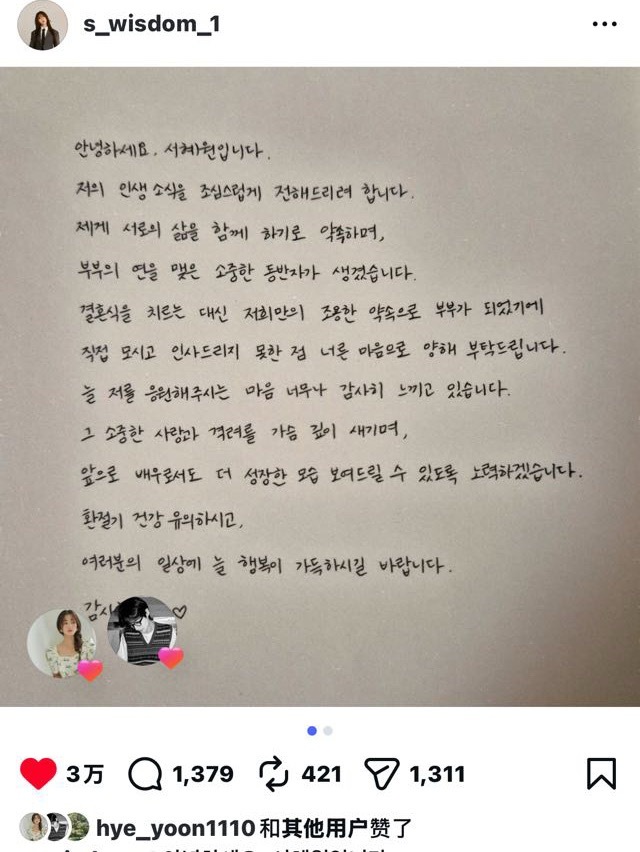 s_wisdom_1
안녕하세요. 서혜원입니다.
저의 인생 소식을 조심스럽게 전해드리려 합니다.
제게 서로의 삶을 함께 하기로 약속하며,
부부의 연을 맺은 소중한 동반자가 생겼습니다.
결혼식을 치르는 대신 저희만의 조용한 약속으로 부부가 되었기에
직접 모시고 인사드리지 못한 점 너른 마음으로 양해 부탁드립니다.
늘 저를 응원해주시는 마음 너무나 감사히 느끼고 있습니다.
그 소중한 사랑과 격려를 가슴 깊이 새기며,
앞으로 배우로서도 더 성장한 모습 보여드릴 수 있도록 노력하겠습니다.
환절기 건강 유의하시고,
여러분의 일상에 늘 행복이 가득하시길 바랍니다.
감사 ♡
3万 1,379 421 1,311
hye_yoon1110和其他用户赞了